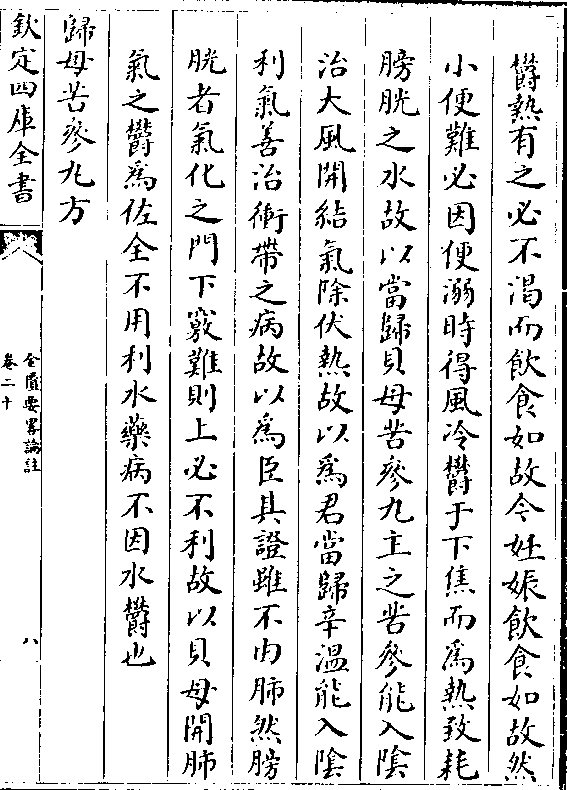 欝熱有之必不渴而飲食如故今妊娠飲食如故然
小便難必因便溺時得風冷欝于下焦而爲熱致耗
膀胱之水故以當歸貝母苦參丸主之苦參能入隂
治大風開結氣除伏熱故以爲君當歸辛溫能入隂
利氣善治衝帶之病故以爲臣其證雖不由肺然膀
胱者氣化之門下竅難則上必不利故以貝母開肺
氣之欝爲佐全不用利水藥病不因水欝也
歸母苦參丸方
欽定四庫全書
金匱要畧論註
卷二十
八